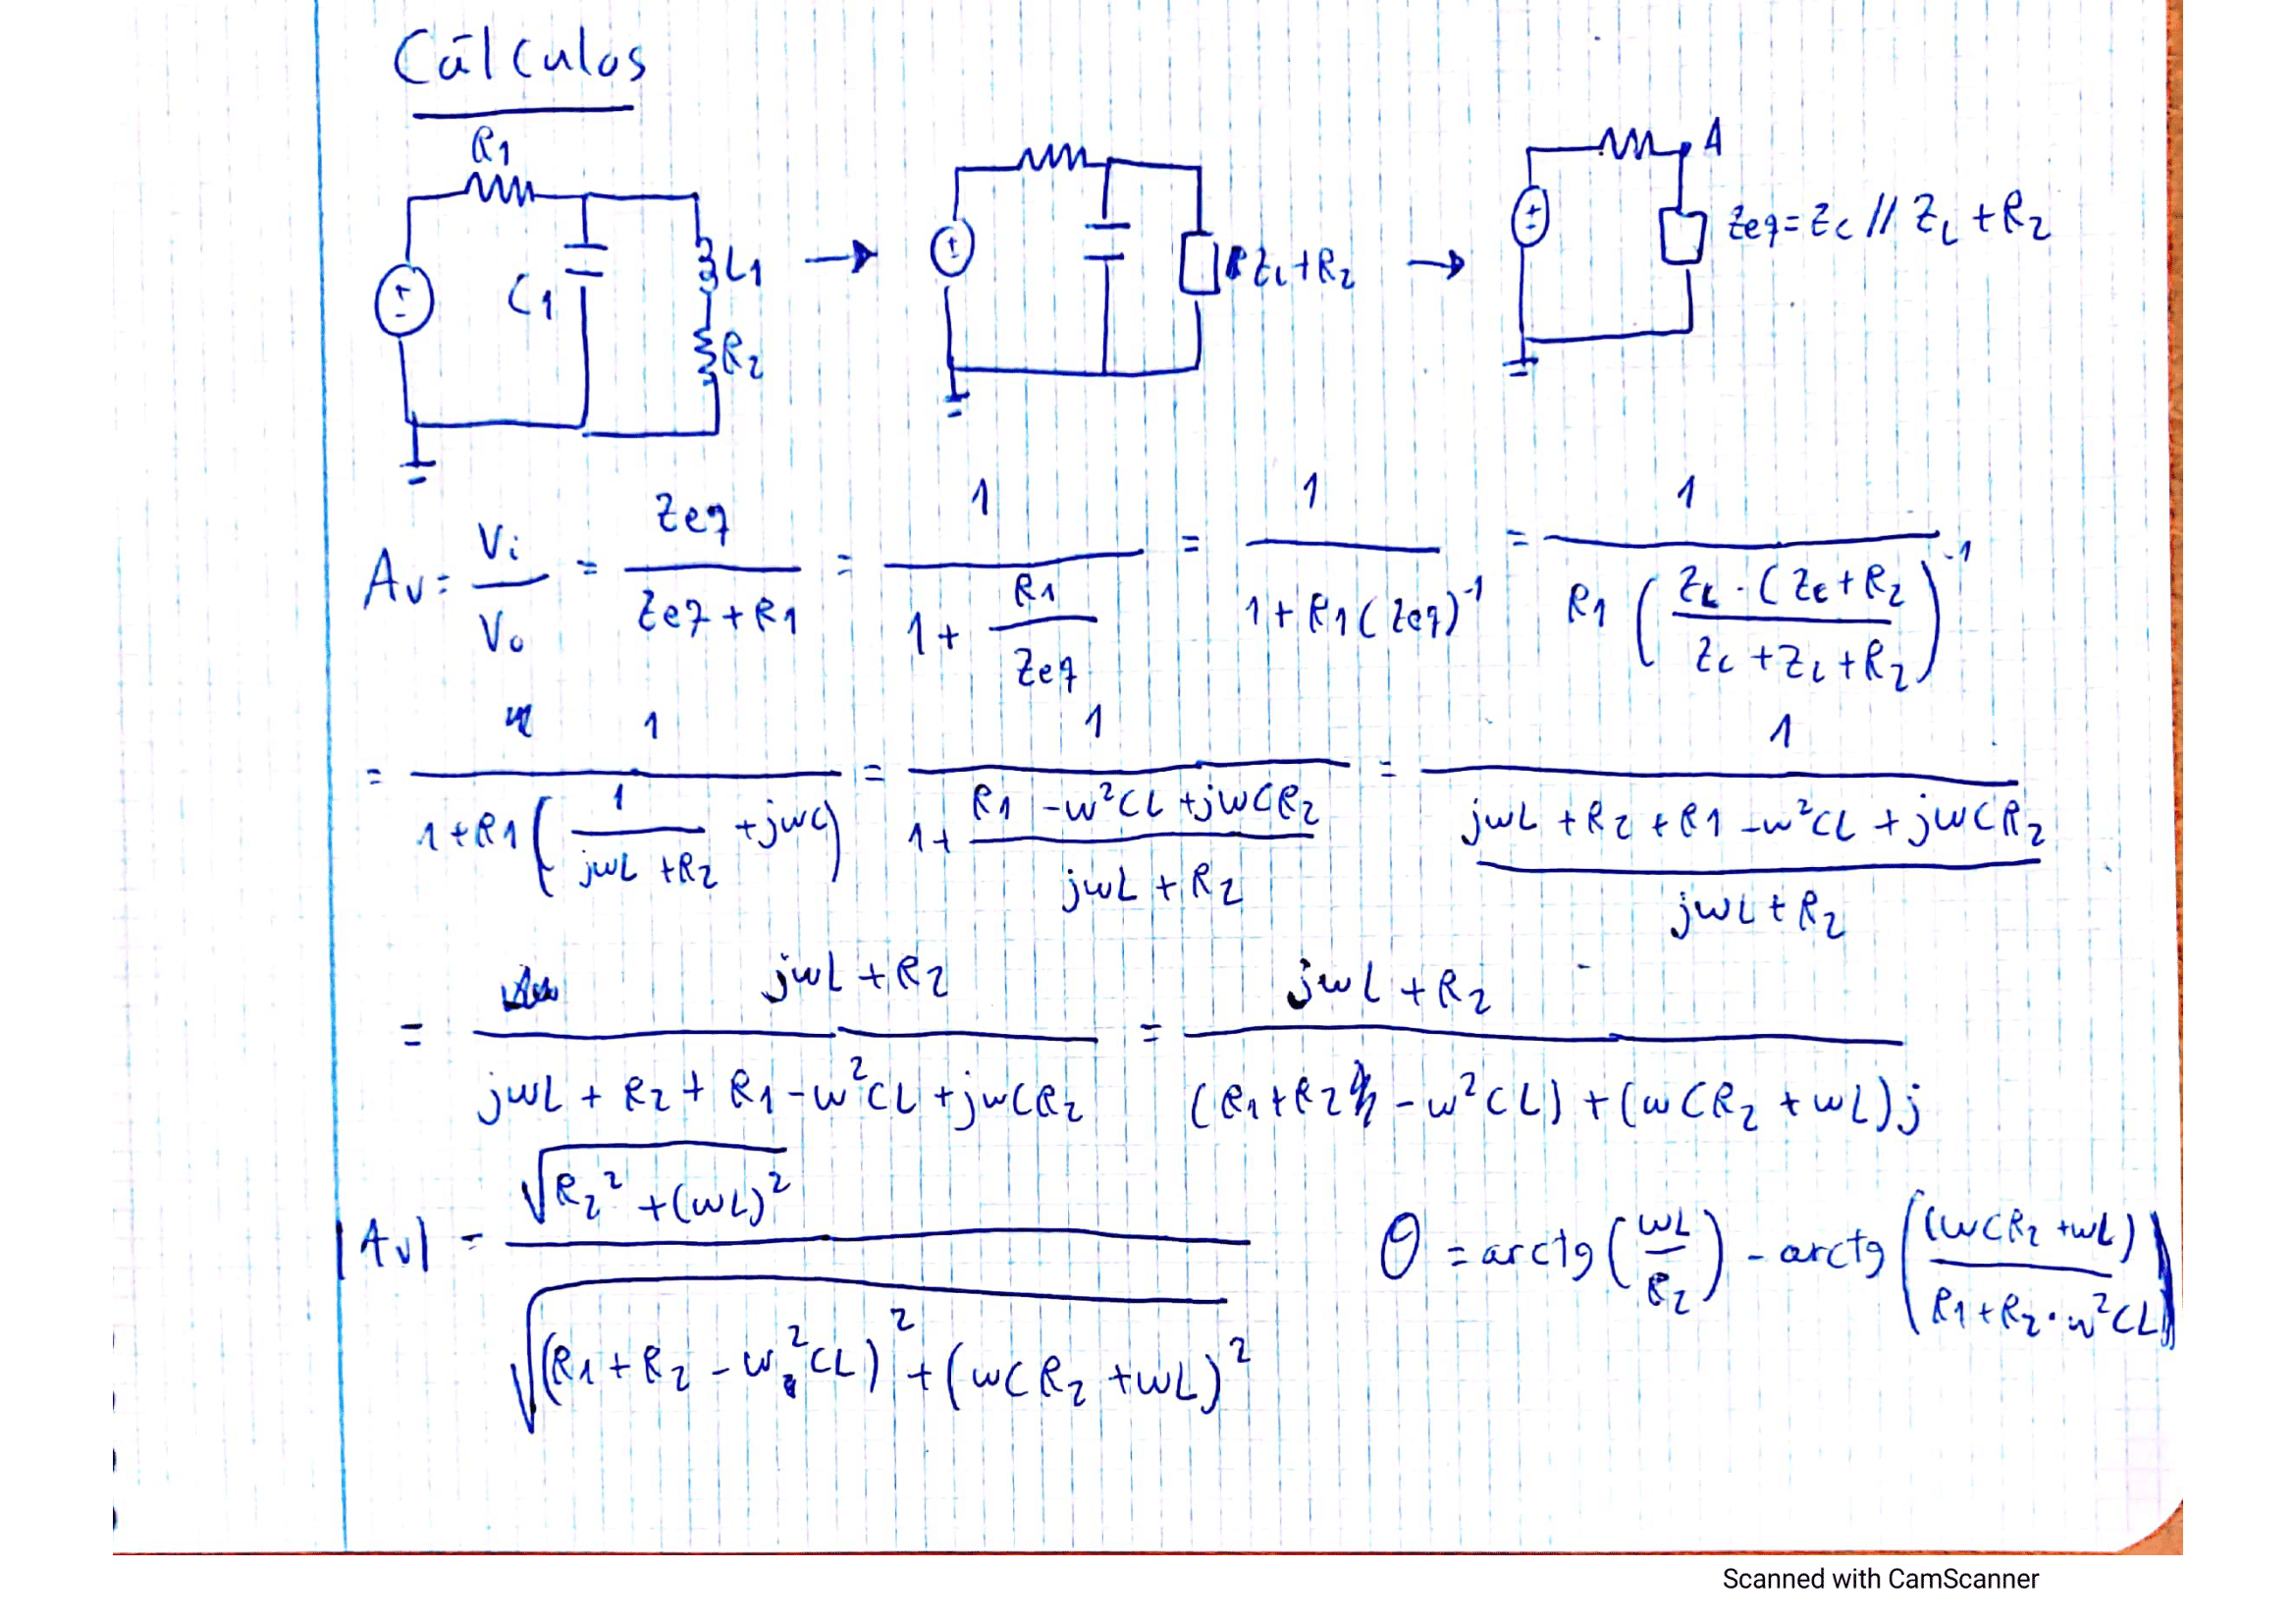 Cálculos
R1
C1
L1
R2
ZL+R2
A
Zeq = Zc // ZL + R2
Av = Vi/Vo = Zeq/(Zeq + R1) = 1/(1 + R1/Zeq) = 1/(1 + R1(Zeq)^-1) = 1/(R1((Zc·(Zc + R2)/(Zc + ZL + R2))^-1)
= 1/(1 + R1(1/(jwL + R2) + jwC)) = 1/(1 + (R1 - w²CL + jwCR2)/(jwL + R2)) = 1/((jwL + R2 + R1 - w²CL + jwCR2)/(jwL + R2))
= (jwL + R2)/(jwL + R2 + R1 - w²CL + jwCR2) = (jwL + R2)/((R1 + R2 - w²CL) + (wCR2 + wL)j)
|Av| = √(R2² + (wL)²)/√((R1 + R2 - w²CL)² + (wCR2 + wL)²)
θ = arctg(wL/R2) - arctg((wCR2 + wL)/(R1 + R2·w²CL))
Scanned with CamScanner